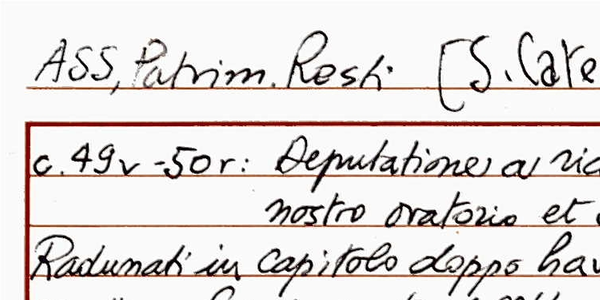 ASS, Patrim. Resti [S. Cate
c. 49v - 50r: Deputatione a ric
nostro oratorio et
Radunati in capitolo doppo hav